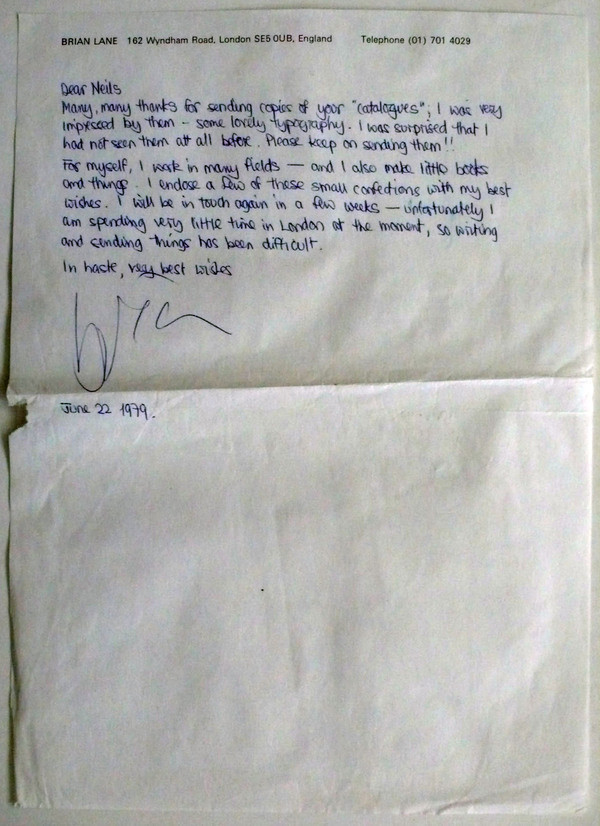 BRIAN LANE 162 Wyndham Road, London SE5 0UB, England Telephone (01) 701 4029
Dear Neils
Many, many thanks for sending copies of your "catalogues"; I was very
impressed by them – some lovely typography. I was surprised that I
had not seen them at all before. Please keep on sending them!!
For myself, I work in many fields — and I also make little books
and things. I enclose a few of these small confections with my best
wishes. I will be in touch again in a few weeks — unfortunately I
am spending very little time in London at the moment, so writing
and sending things has been difficult.
In haste, very best wishes
Brian
June 22 1979.